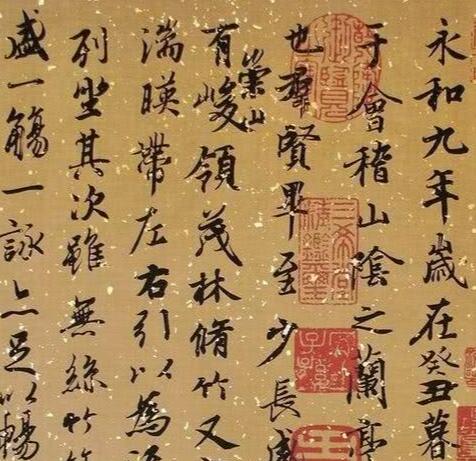 永和九年歲在癸丑暮
于會稽山陰之蘭亭
也羣賢畢至少長咸
有崇山峻領茂林脩竹又
湍暎帶左右引以為流
列坐其次雖無絲竹管
盛一觴一詠亦足以暢
三希堂精鑑璽
宜子孫